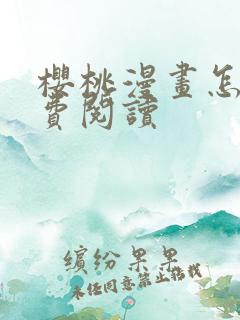 櫻桃漫畫怎
費閱讀
繽紛果果
未经同意禁止转载